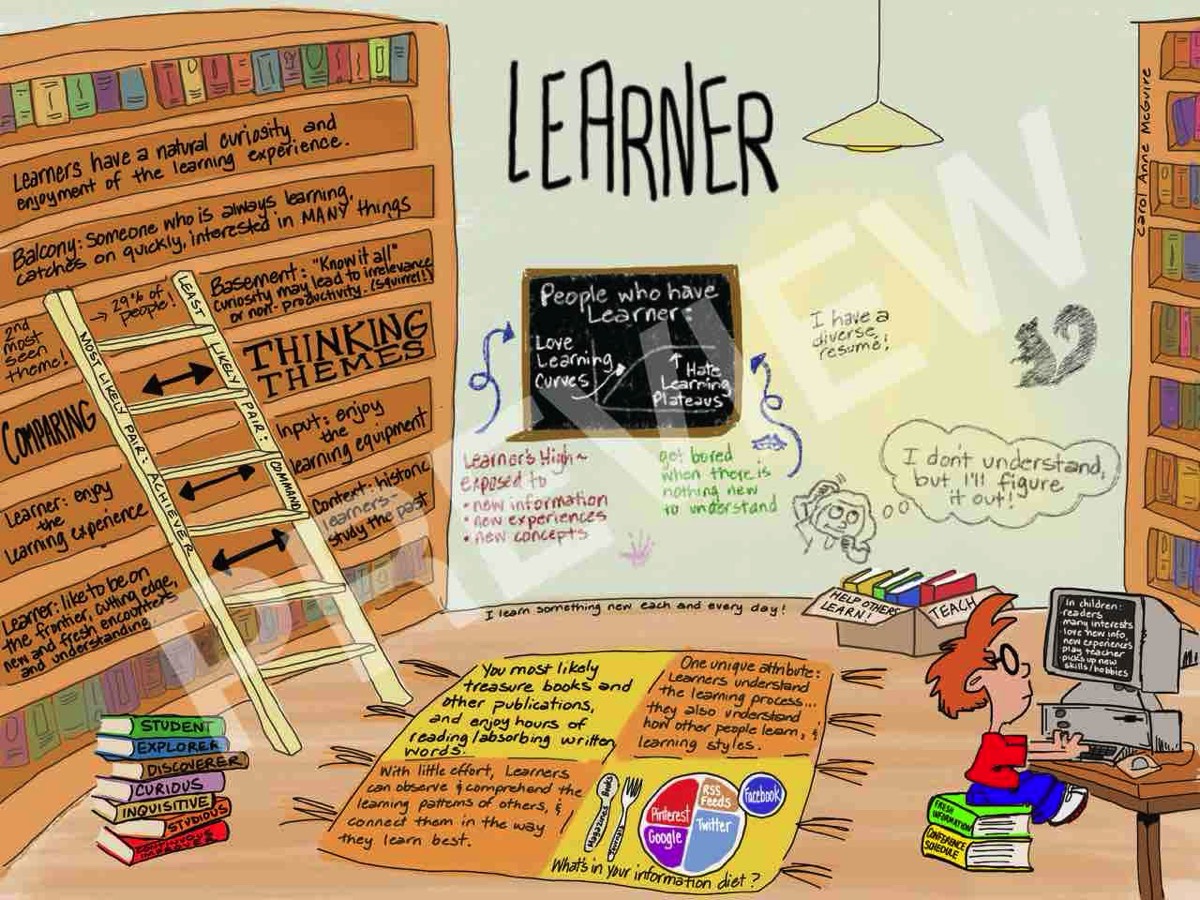 LEARNER
Carol Anne McGuire
PREVIEW
Learners have a natural curiosity and
enjoyment of the learning experience.
Balcony: Someone who is always learning,
catches on quickly, interested in MANY things
2nd
most
seen
theme!
→ 29% of
people!
Basement: "Know it all"
curiosity may lead to irrelevance
or non-productivity. (squirrel!)
THINKING
THEMES
COMPARING
MOST LIKELY PAIR: ACHIEVER
LEAST LIKELY PAIR: COMMAND
Learner: enjoy
the
learning experience
Input: enjoy
the
learning equipment
Learner: like to be on
the frontier, cutting edge,
new and fresh encounters
and understanding
Context: historic
learners -
study the past
People who have
Learner:
Love
Learning
Curves
↑ Hate
Learning
Plateaus
Learner's High~
exposed to
• new information
• new experiences
• new concepts
get bored
when there is
nothing new
to understand
I have a
diverse
resume!
I don't understand,
but I'll figure
it out!
I learn something new each and every day!
HELP OTHERS
LEARN!
TEACH
In children:
-readers
-many interests
-love new info,
new experiences
play teacher
picks up new
skills/hobbies
FRESH
INFORMATION
CONFERENCE
SCHEDULE
STUDENT
EXPLORER
DISCOVERER
CURIOUS
INQUISITIVE
STUDIOUS
You most likely
treasure books and
other publications,
and enjoy hours of
reading/absorbing written
words.
One unique attribute:
Learners understand
the learning process...
they also understand
how other people learn, &
learning styles.
With little effort, Learners
can observe & comprehend the
learning patterns of others, &
connect them in the way
they learn best.
Magazines Books
Pinterest
RSS
Feeds
Facebook
Google
Twitter
What's in your information diet?